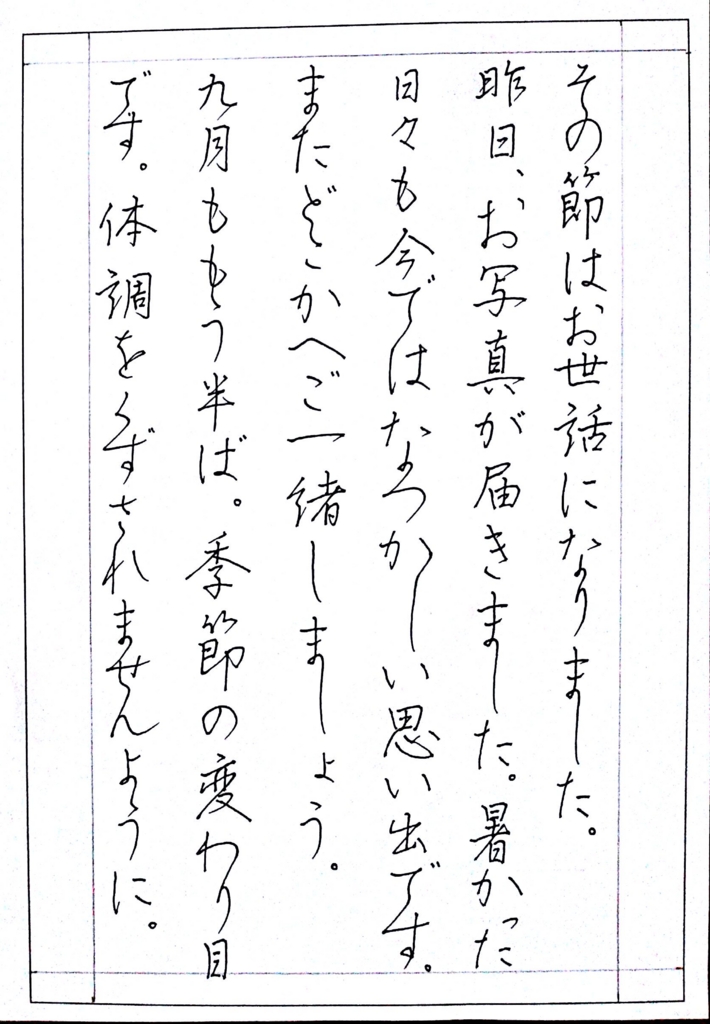 その節はお世話になりました。
昨日、お写真が届きました。暑かった
日々も今ではなつかしい思い出です。
またどこかへご一緒しましょう。
九月ももう半ば。季節の変わり目
です。体調をくずされませんように。